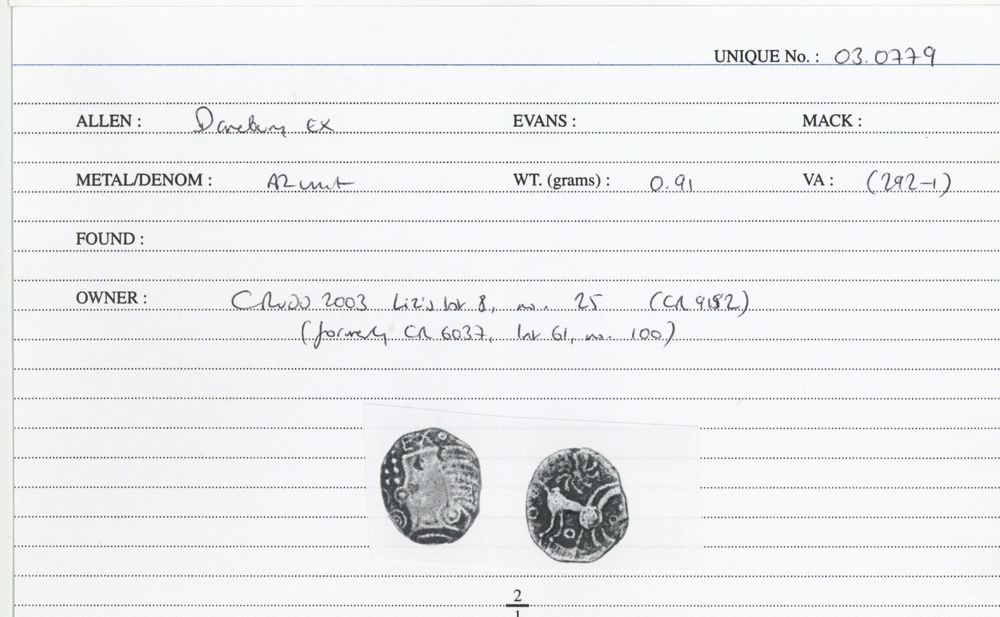 UNIQUE No. : 03.0779
ALLEN : Danebury EX EVANS : MACK :
METAL/DENOM : AR unit WT. (grams) : 0.91 VA : (292-1)
FOUND :
OWNER : CRUDD 2003 Liz's lot 8, no. 25 (CR 9182)
(formerly CR 6037, lot 61, no. 100)
2
1